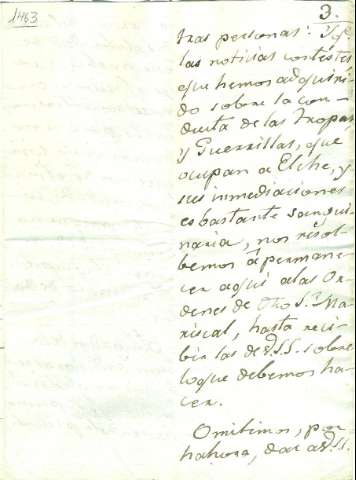 1463
3.
tras personas: Y p.r
las noticias contestes
que hemos adquiri-
do sobre la con-
ducta de las Tropas,
y Guerrillas, que
ocupan a Elche, y
sus inmediaciones
es bastante sangui-
naria, nos résol-
bemos á permane-
cer aqui alas Or-
denes de Dho S.r Ma-
riscal, hasta reci-
bir las de V.S.S. sobre
loque debemos ha-
cer.
Omitimos, por
hahora, dar a V.S.S.